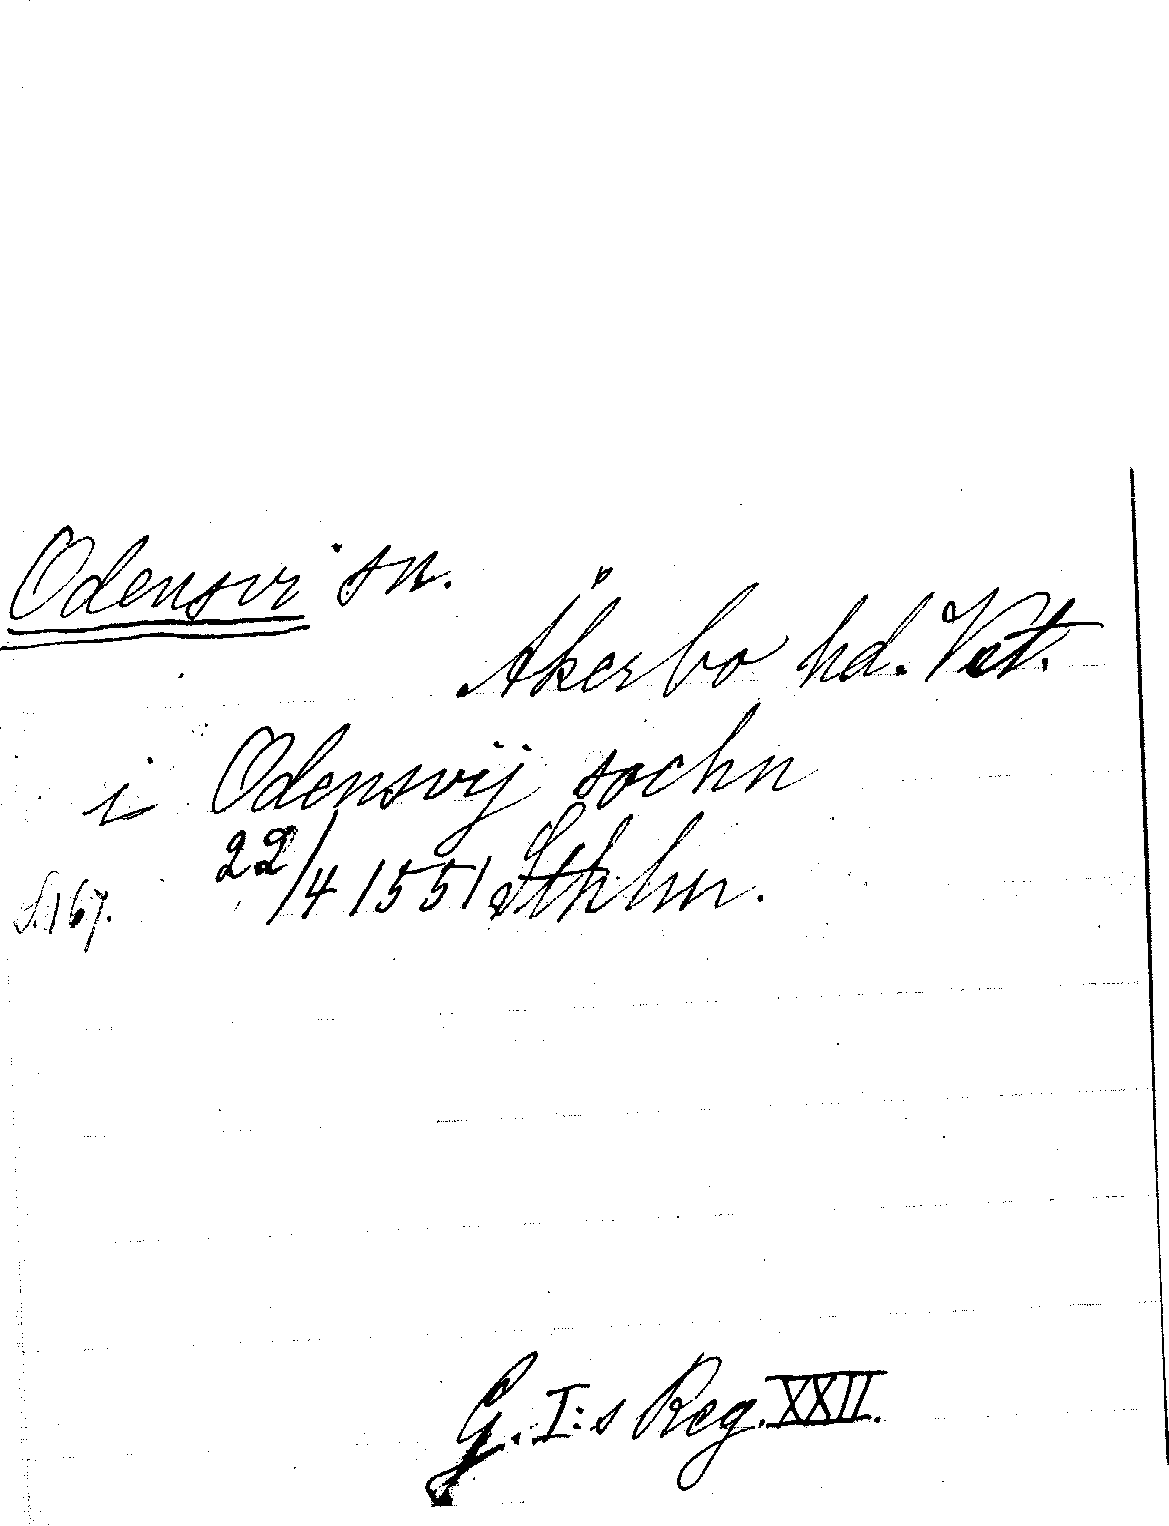 Odensvi sn.
Åkerbo hd. Vst.
i Odensvij sochn
S. 167. 22/4 1551 Sthlm.
G. I:s Reg. XXII.